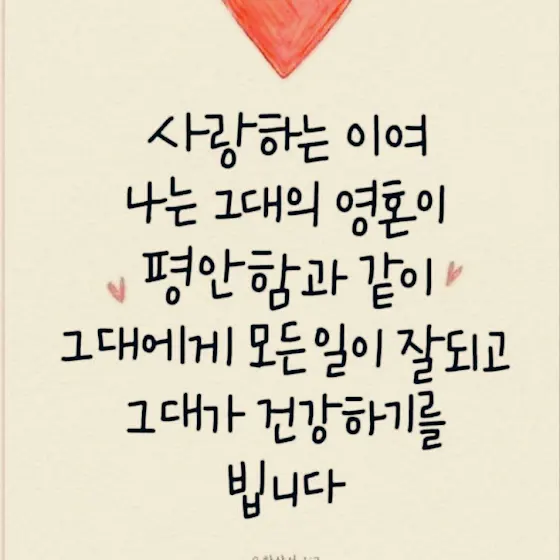 사랑하는 이여
나는 그대의 영혼이
평안함과 같이
그대에게 모든 일이 잘되고
그대가 건강하기를
빕니다